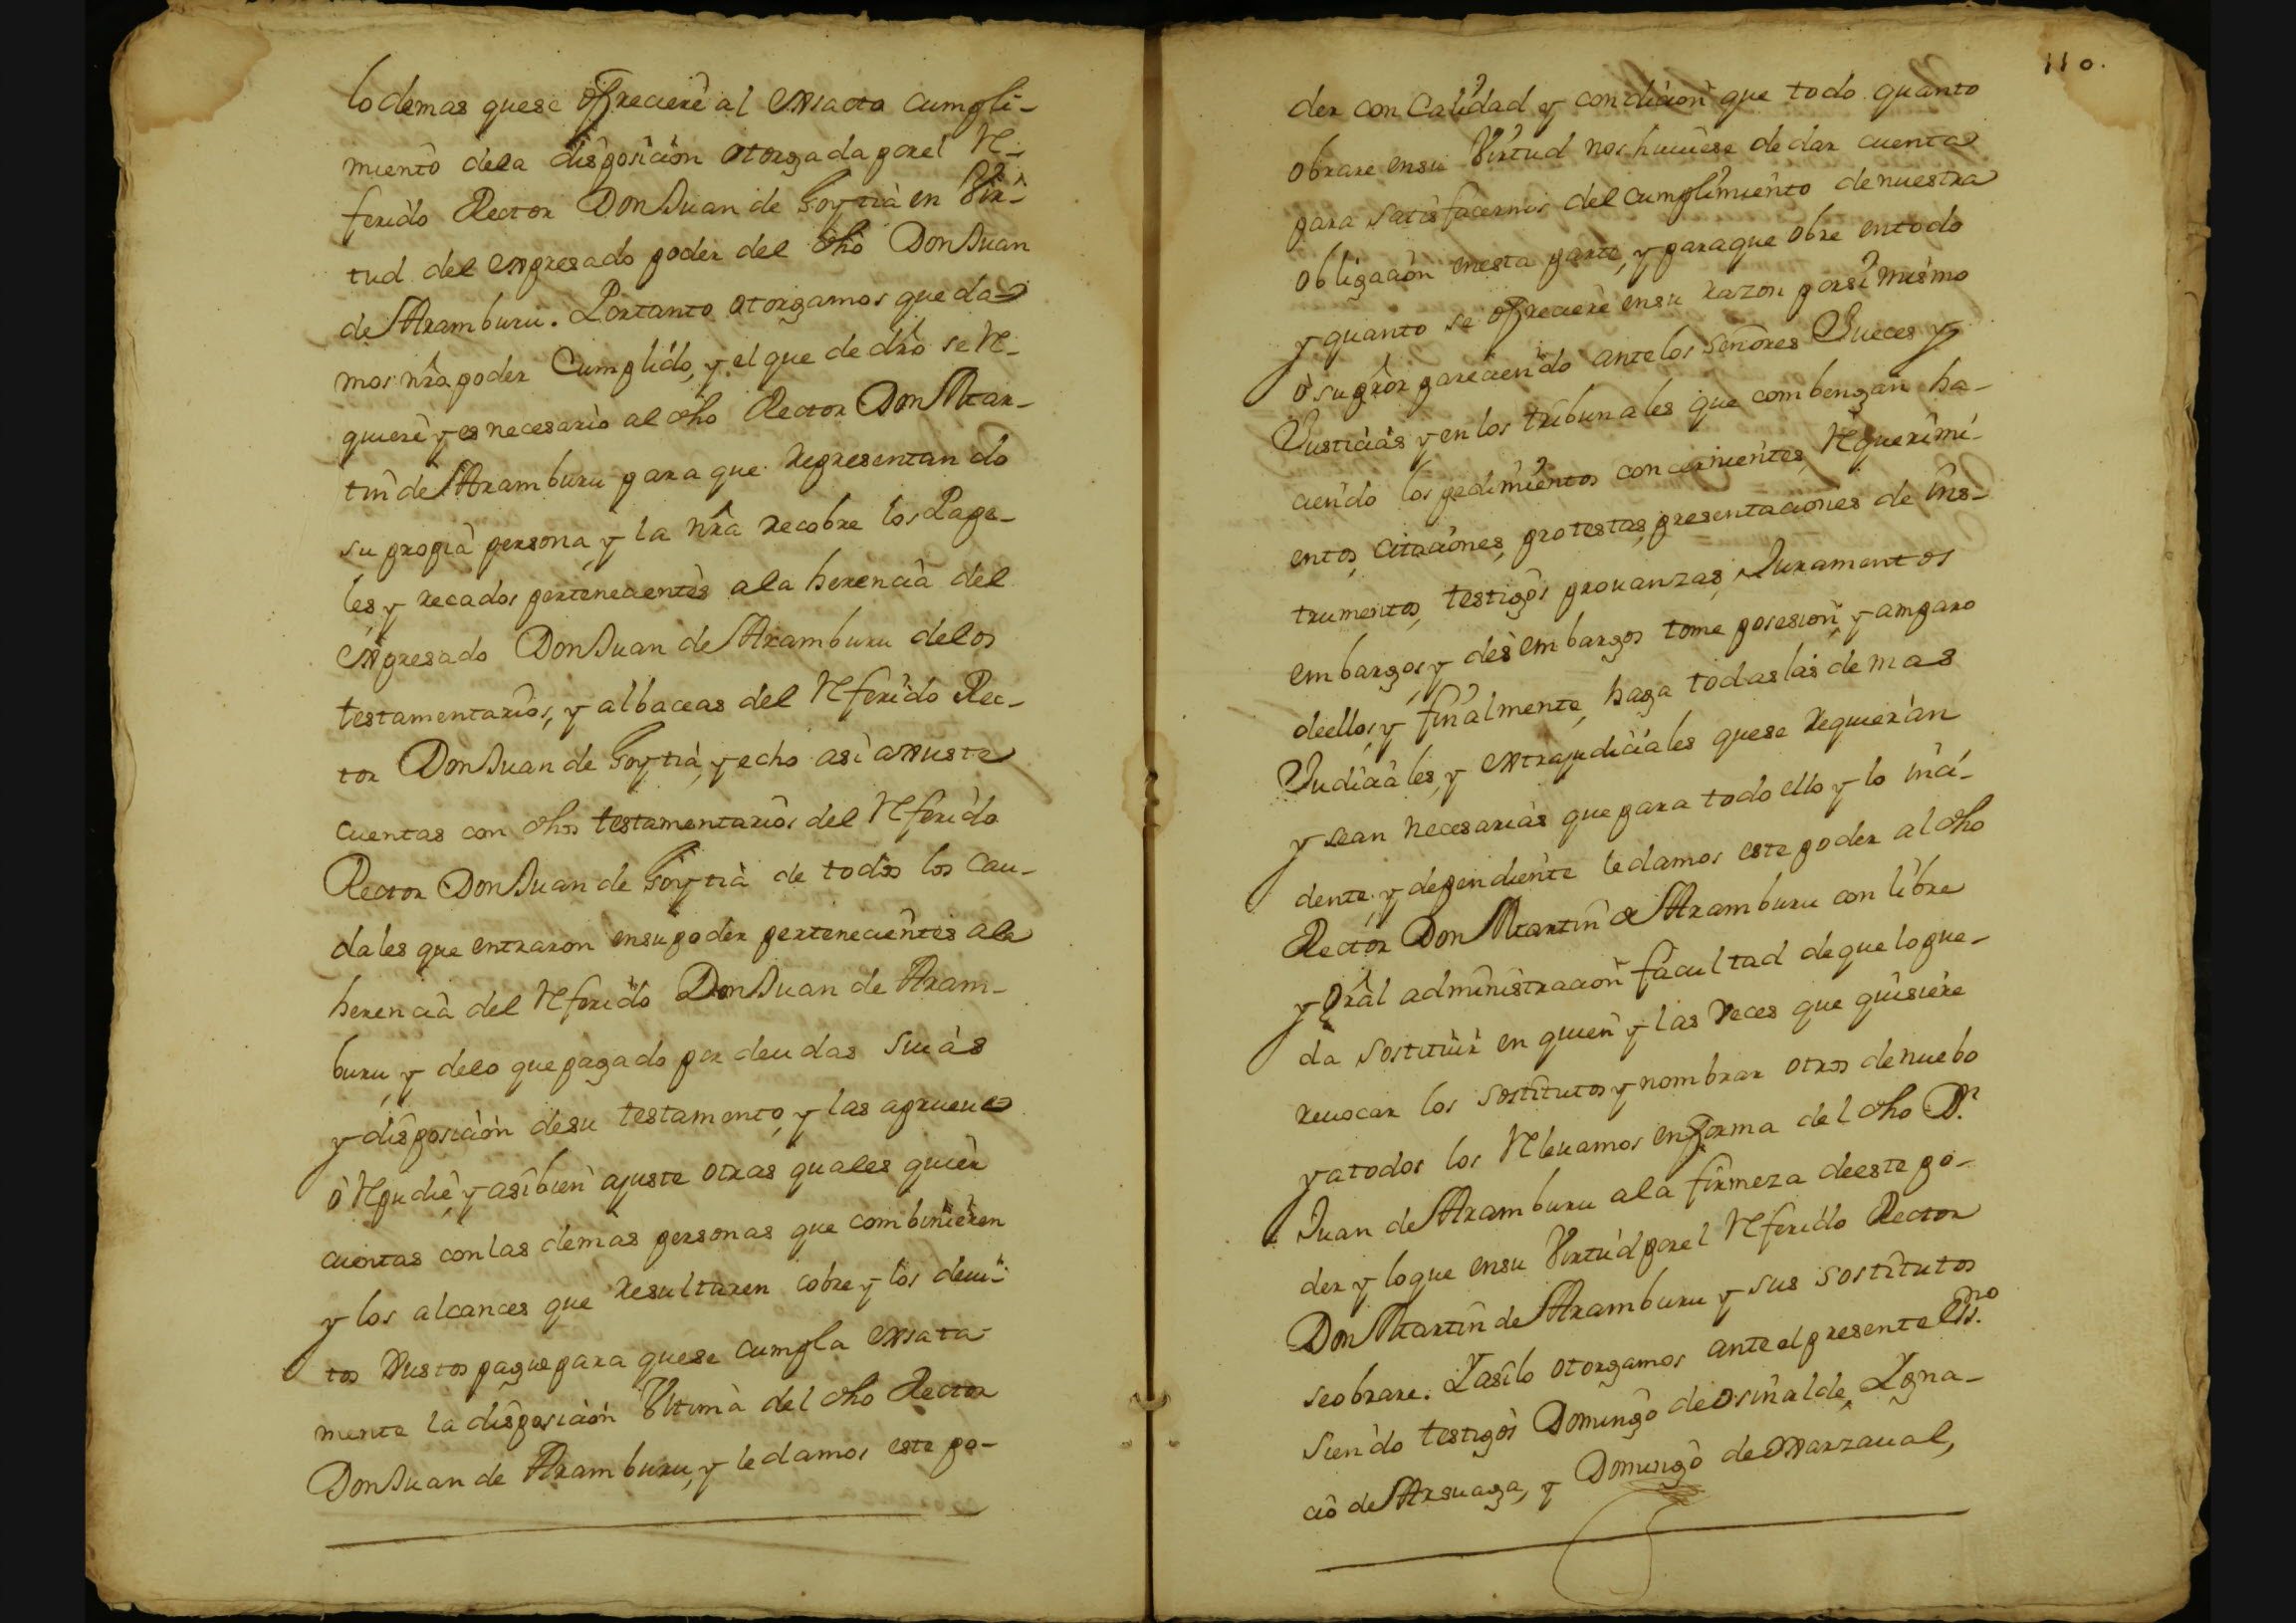 lo demas quese ofreciere al exsacto cumpli-
miento dela disposicion otorgada por el Re-
ferido Rector Don Juan de Goytia en Vir-
tud del expresado poder del dho Don Juan
de Aramburu. Portanto otorgamos que da-
mos nro poder Cumplido, y el que de dro se Re-
quiere y es necesario al dho Rector Don Mar-
tin de Aramburu para que Representando
su propia persona, y la nra Recobre los Pape-
les, y recados pertenecientes ala herencia del
expresado Don Juan de Aramburu delos
testamentarios, y albaceas del Referido Rec-
tor Don Juan de Goytia, y echo asi axuste
cuentas con dhos testamentarios del Referido
Rector Don Juan de Goytia de todos los Cau-
dales que entraron ensu poder pertenecientes ala
herencia del Referido Don Juan de Aram-
buru, y delo que pagado por deudas suias
y disposicion desu testamento, y las aprueue
ò Repudie, y asi bien ajuste otras quales quier
cuentas con las demas personas que combinieren
y los alcances que Resultaren cobre y los deui-
tos Justos pague para quese cumpla exsata-
mente la disposicion Vltima del dho Rector
Don Juan de Aramburu, y le damos este po-
110.
der con Calidad y condicion que todo quanto
obrare ensu Virtud nos huuiese de dar cuenta
para satisfacernos del cumplimiento de nuestra
obligacion enesta parte, y paraque obre entodo
y quanto se ofreciere ensu razon porsi mismo
ò su pror pareciendo antelos señores Jueces y
Justicias y en los tribunales que combengan ha-
ciendo los pedimientos concernientes, Requerimi-
entos, citaciones, protestas, presentaciones de ins-
trumentos, testigos prouanzas, Juramentos
embargos, y desembargos tome posesion, y amparo
deellos, y finalmente, haga todas las demas
Judiciales, y extrajudiciales quese Requieran
y sean necesarias que para todo ello y lo inci-
dente, y dependiente le damos este poder al dho
Rector Don Martin de Aramburu con libre
y Gral administracion facultad de que lo pue-
da sostituir en quien y las Veces que quisiere
reuocar los sostitutos y nombrar otros de nuebo
y atodos los Releuamos enforma del dho Dn.
Juan de Aramburu ala firmeza deeste po-
der y loque ensu Virtud por el Referido Rector
Don Martin de Aramburu y sus sostitutos
seobrare. Y asilo otorgamos ante el presente Essno.
siendo testigos Domingo de osinalde, Ygna-
cio de Arsuaga, y Domingo de Marzaual,